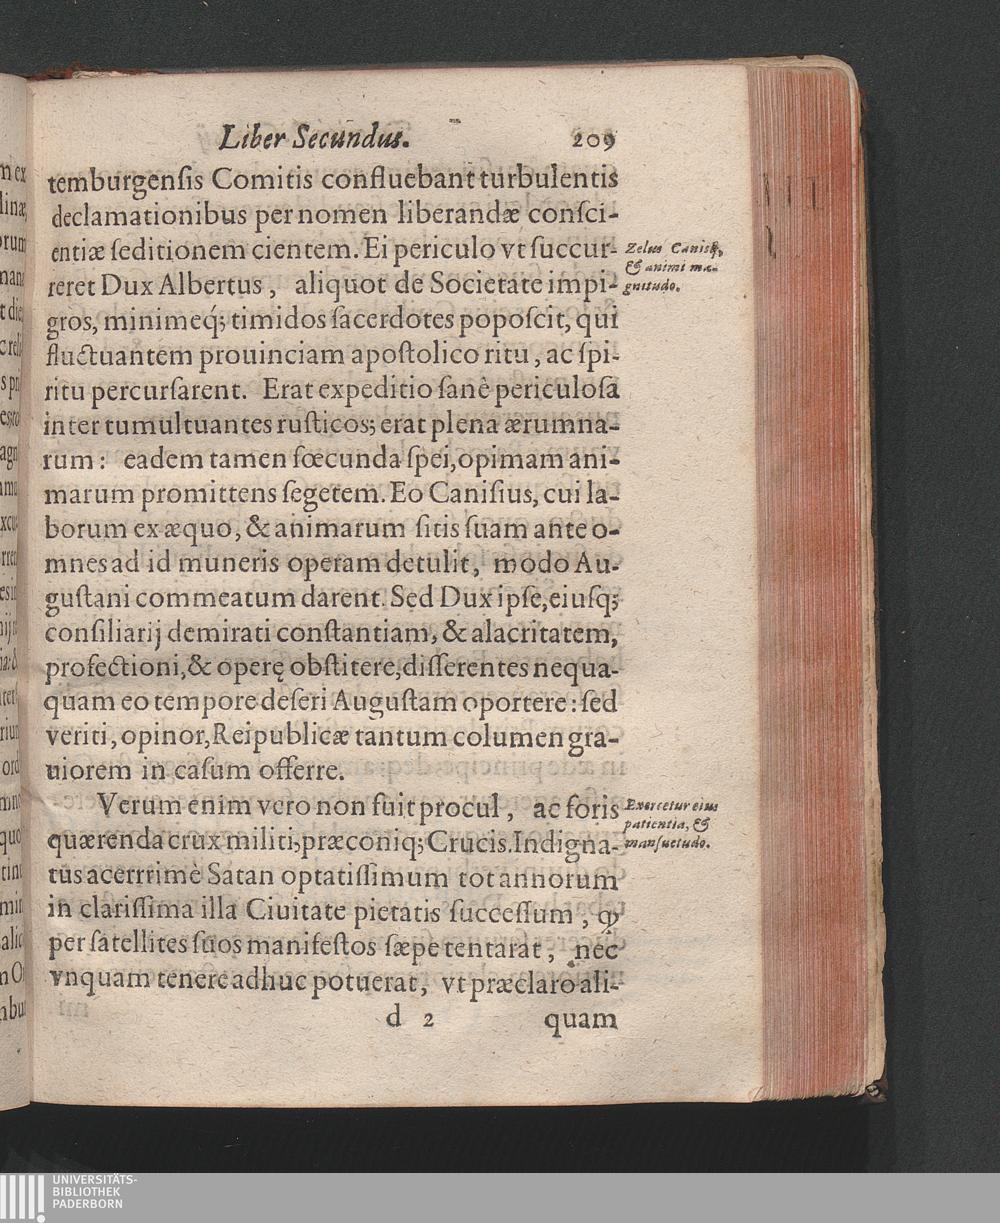 Liber Secundus. 209
temburgenſis Comitis confluebant turbulentis
declamationibus per nomen liberandæ conſci-
entiæ ſeditionem cientem. Ei periculo vt ſuccur-
reret Dux Albertus, aliquot de Societate impi-
gros, minimeq́; timidos ſacerdotes popoſcit, qui
fluctuantem prouinciam apoſtolico ritu, ac ſpi-
ritu percurſarent. Erat expeditio ſanè periculoſa
inter tumultuantes ruſticos; erat plena ærumna-
rum: eadem tamen fœcunda ſpei, opimam ani-
marum promittens ſegetem. Eo Caniſius, cui la-
borum ex æquo, & animarum ſitis ſuam ante o-
mnes ad id muneris operam detulit, modo Au-
guſtani commeatum darent. Sed Dux ipſe, eiuſq;
conſiliarij demirati conſtantiam, & alacritatem,
profectioni, & operę obſtitere, diſſerentes nequa-
quam eo tempore deſeri Auguſtam oportere: ſed
veriti, opinor, Reipublicæ tantum columen gra-
uiorem in caſum offerre.
Verum enim vero non fuit procul, ac foris
quærenda crux militi, præconiq; Crucis. Indigna-
tus acerrimè Satan optatiſſimum tot annorum
in clariſſima illa Ciuitate pietatis ſucceſſum, ꝙ
per ſatellites ſuos manifeſtos ſæpe tentarat, nec
vnquam tenere adhuc potuerat, vt præclaro ali-
d 2 quam
Zelus Canisij,
& animi ma-
gnitudo.
Exercetur eius
patientia, &
manſuetudo.
UNIVERSITÄTS-
BIBLIOTHEK
PADERBORN